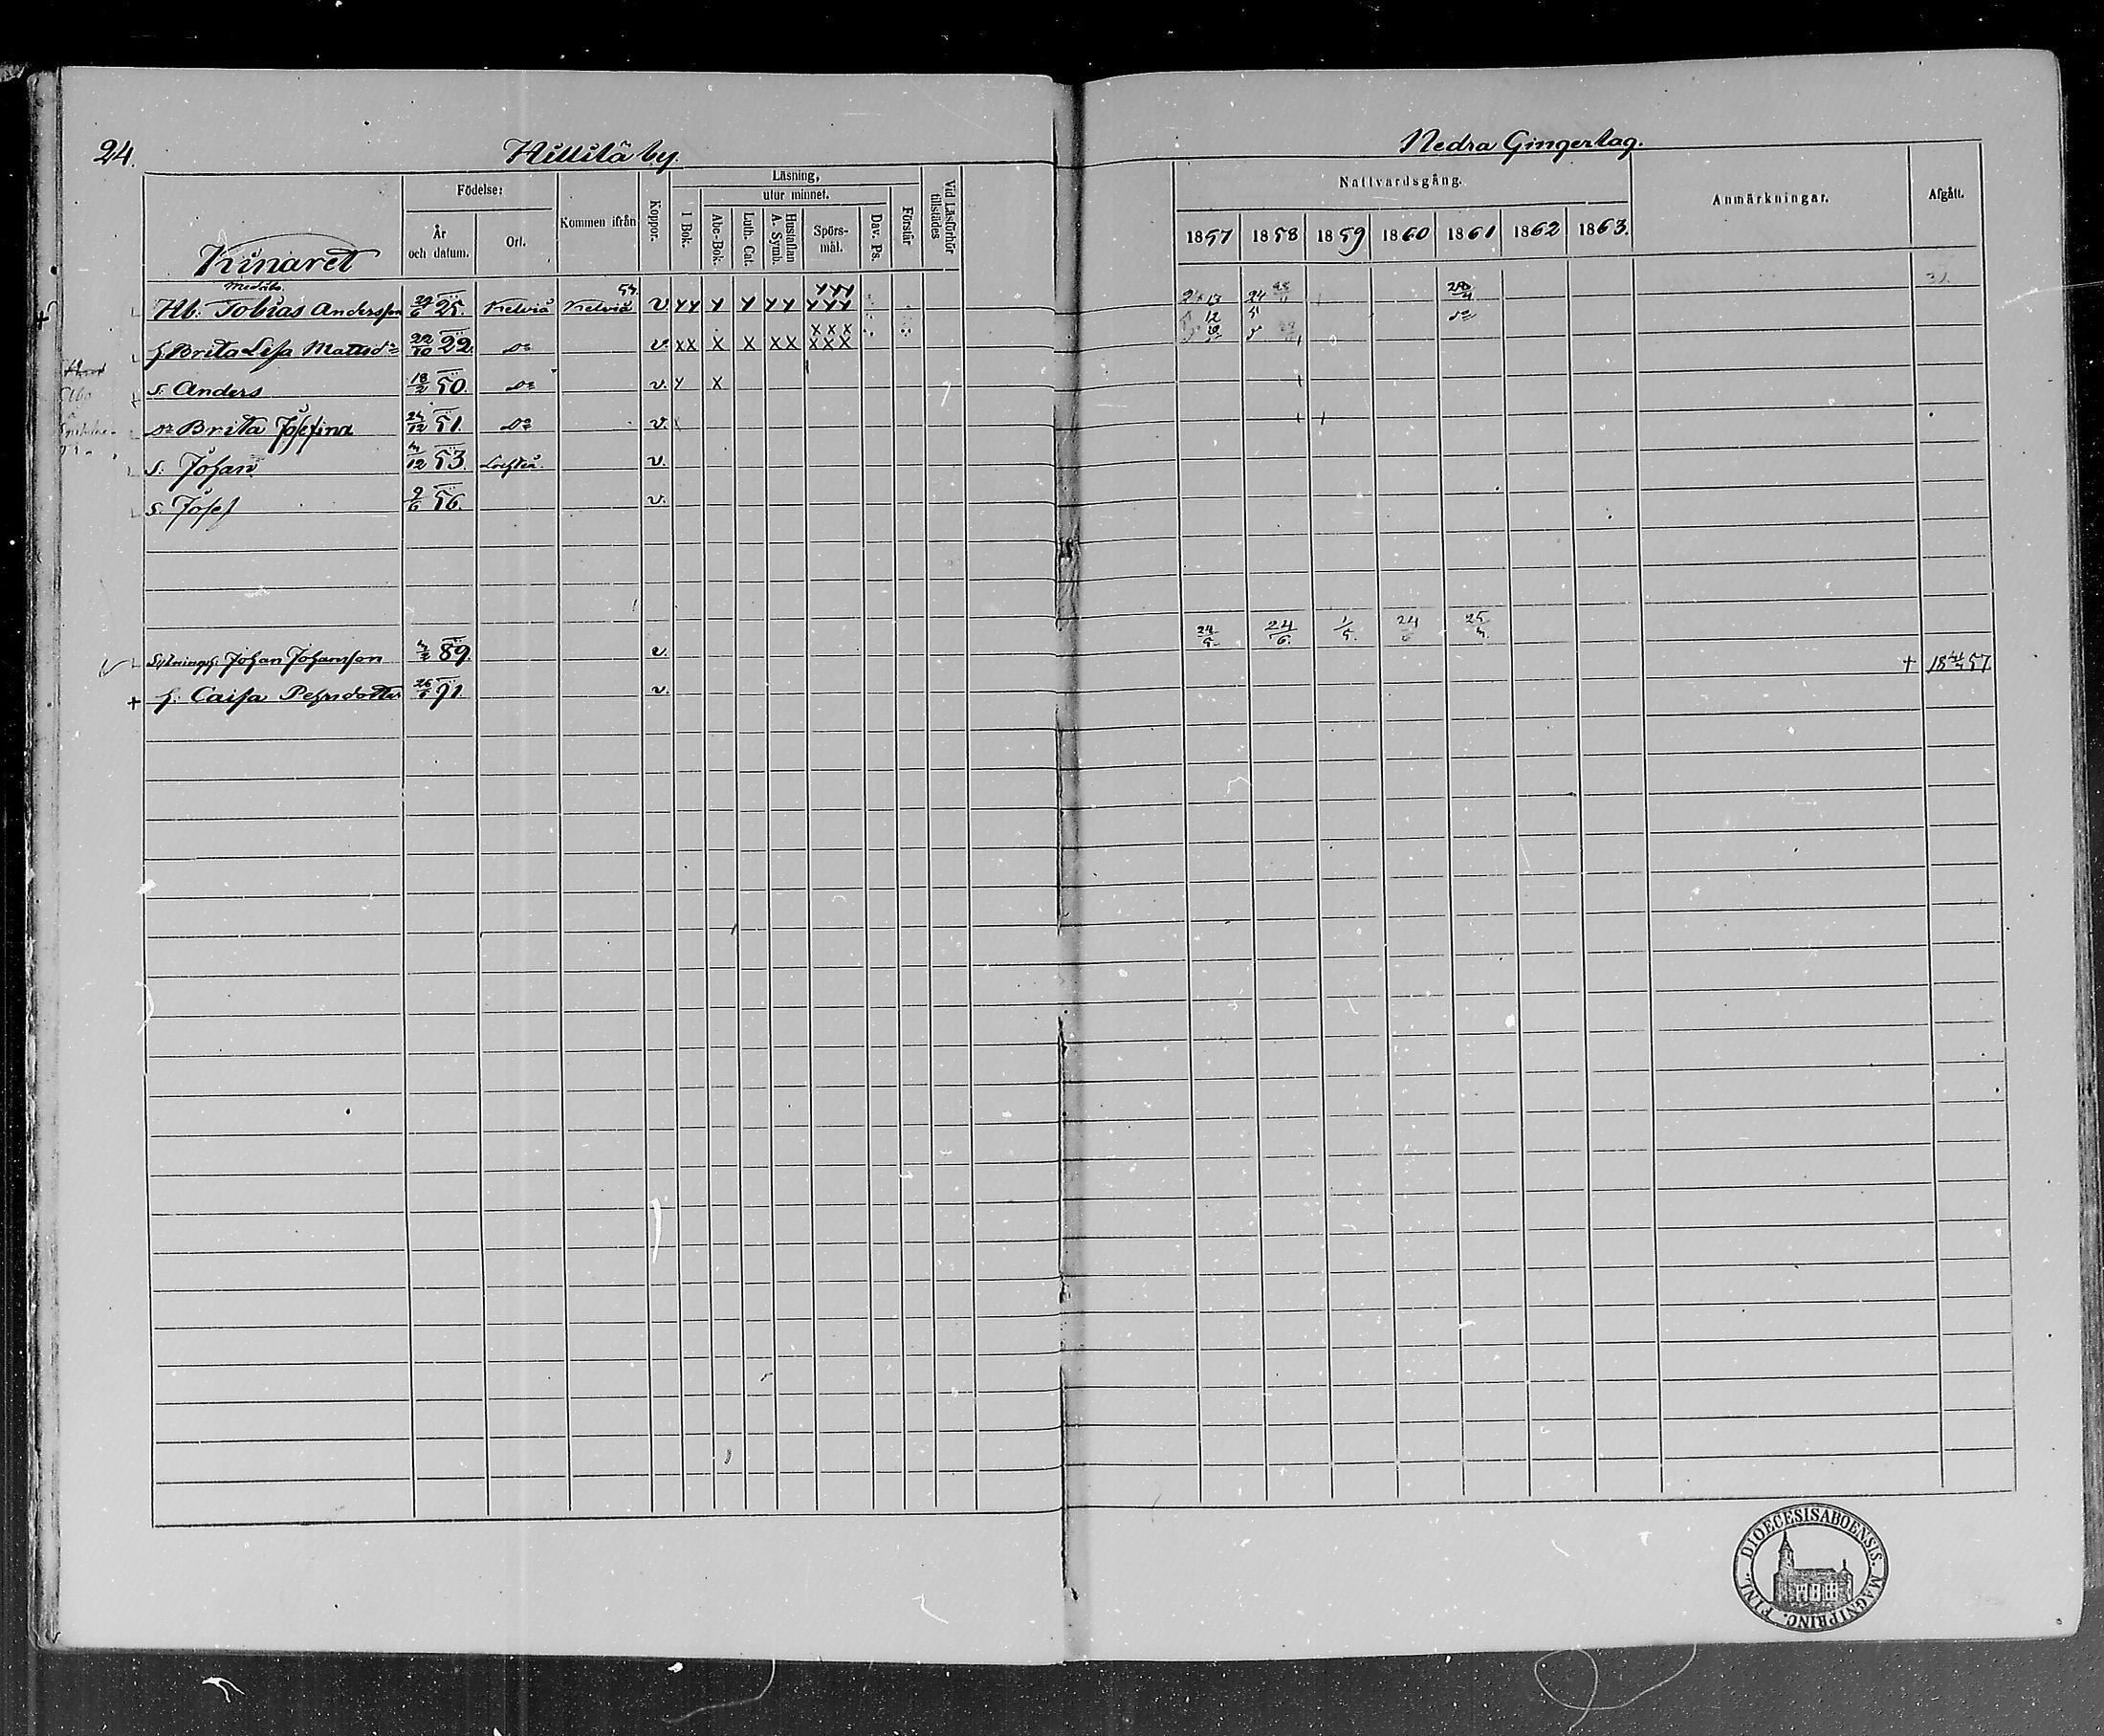 24.
Hillilä by.
Nedra Gingerlag.
Kinaret
Födelse:
År och datum.
Ort.
Kommen ifrån
Koppor.
Läsning,
utur minnet.
I Bok.
Abc-Bok.
Luth. Cat.
Hustaflan A. Symb.
Spörs-mål.
Dav. Ps.
Förstår
Vid Läsförhör tillstädes
Nattvardsgång.
1857 1858 1859 1860 1861 1862 1863.
Anmärkningar.
Afgått.
Hb. Tobias Andersson 25. Kelviå Kelviå 54. v
h Brita Lisa Mattsdr 22/10 22. Do v. xx x x xx xxx xxx
S. Anders 18/2 50. Do v. x
Dr Brita Josefina 24/12 51. Do v.
S. Johan 53. Lochteå v.
S. Josef 9/6 56. v.
Sytningsh. Johan Johansson 89. v. 24/5 24/6. 1/5. 24/6 25/4.
+ h. Caisa Pehrsdotter 26/1 91 v. + 18 57
DIOECESIS ABOENSIS. MAGNI PRINC. FINL.